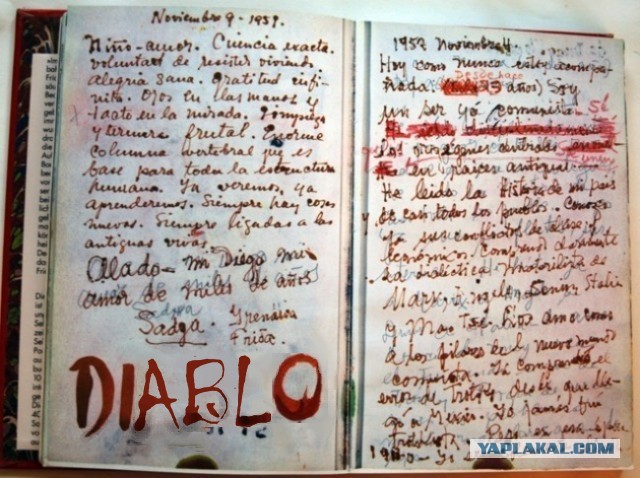 Noviembre 9 - 1951.
Niño-amor. Ciencia exacta.
voluntad de resistir viviendo
alegria sana. Gratitud infi-
nita. Ojos en las manos y
tacto en la mirada. Limpieza
y ternura frutal. Enorme
columna vertebral que es
base para toda la estructura
humana. Ya veremos, ya
aprenderemos. Siempre hay cosas
nuevas. Siempre ligadas a las
antiguas vivas.
Alado - mi Diego mi
amor de miles de años
Sadga. Yrenáica
Frida.
DIABLO
1952 Noviembre 4
Hoy como nunca estoy acompa-
Desde hace
ñada. 25 años) Soy
un ser yá comunista. Sé
los origenes centrales
en raices antiguas
He leido la Historia de mi pais
y de casi todos los pueblos. Conozco
ya sus conflictos de clases y
económicos. Comprendo
la dialéctica materialista de
Marx, Lenin, Stalin
y Mao Tsé. Los amo como
a los pilares del nuevo mundo
comunista. Ya comprendí el
error de Trotsky desde que lle-
gó a México. Yo jamás fui
trotskista.
YAPLAKAL.COM